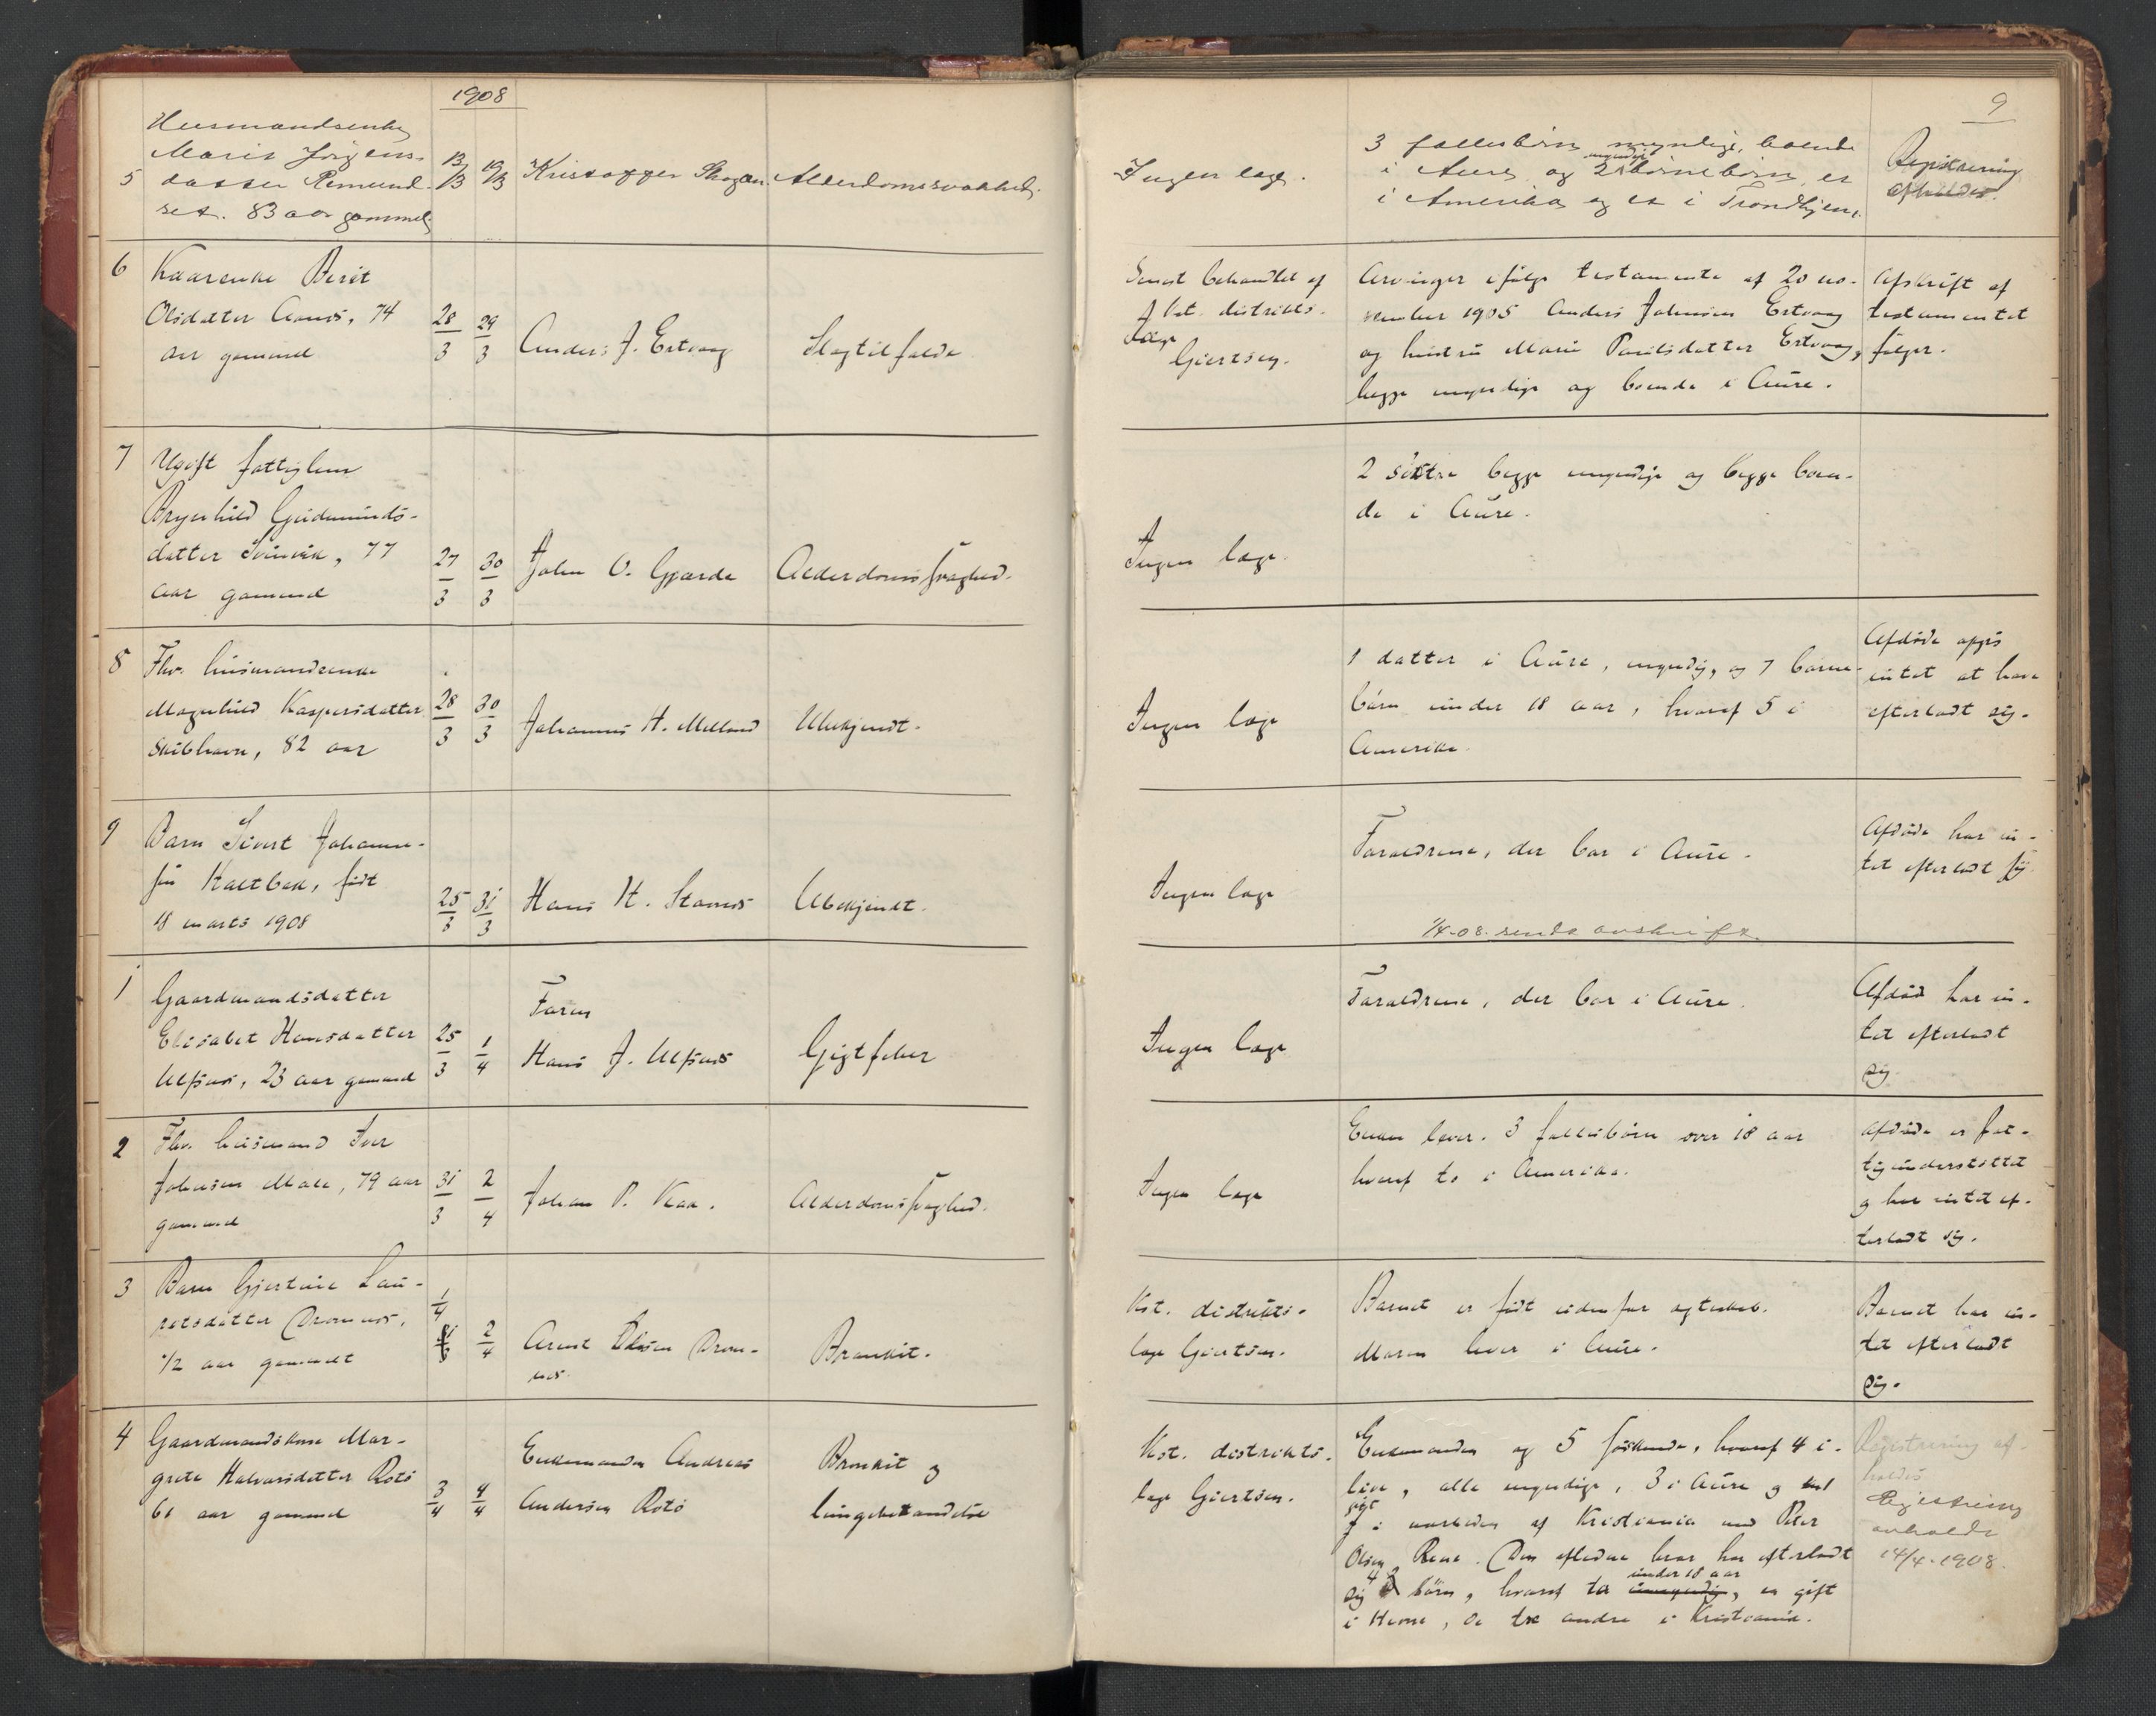 1908
9
Husmandsenke
Marit Jørgens-
5 datter Remund-
set. 83 aar gammel
13/3 19/3
Kristoffer Skogan
Alderdomssvakhed.
Ingen læge.
3 fællesbörn myndige, boende
i Aure og 2 myndige börnebörn, et
i Amerika og et i Trondhjem.
Registrering
afholdes.
6 Kaarenke Berit
Olsdatter Aanes, 74
aar gammel
28/3 29/3
Anders J. Ertvaag
Slagtilfælde
Senest behandlet af
Kst. distrikts-
læge
Giertsen.
Arvinger ifölge testamente af 20 no-
vember 1905 Anders Johnsen Ertvaag
og hustru Marie Poulsdatter Ertvaag,
begge myndige og boende i Aure.
Afskrift af
testamentet
fölger.
7 Ugift fattiglem
Brynhild Gudmunds-
datter Svinvik, 77
aar gammel
27/3 30/3
John O. Gjærde
Alderdomssvaghed.
Ingen læge.
2 söstre begge myndige og begge boen-
de i Aure.
8 Fhv. husmandsenke
Magnhild Kaspersdatter
Skibhavn, 82 aar
28/3 30/3
Johannes H. Melland
Ubekjendt.
Ingen læge
1 datter i Aure, myndig, og 7 barne-
börn under 18 aar, hvoraf 5 i
Amerika.
Afdöde opgis
intet at have
efterladt sig.
9 Barn Sivert Johannes-
sen Kaltbak, födt
18 marts 1908
25/3 31/3
Hans H. Stamnes
Ubekjendt.
Ingen læge
Forældrene, der bor i Aure.
1/4-08. sendt avskrift.
Afdöde har in-
tet efterladt sig
1 Gaardmandsdatter
Elisabet Hansdatter
Ulfsnes, 23 aar gammel
25/3 1/4
Faren
Hans J. Ulfsnes
Gigtfeber
Ingen læge
Forældrene, der bor i Aure.
Afdöd har in-
tet efterladt
sig.
2 Fhv. husmand Iver
Johnsen Male, 79 aar
gammel
31/3 2/4
Johan P. Kaa.
Alderdomssvaghed.
Ingen læge
Enken lever. 3 fællesbörn over 18 aar
hvoraf to i Amerika.
Afdöde er fat-
tigunderstöttet
og har intet ef-
terladt sig.
3 Barn Gjertine Lau-
ritsdatter Dromnes,
1/2 aar gammelt
1/4 2/4
Arent Olsen Drom-
nes.
Bronkit.
Kst. distrikts-
læge Giertsen.
Barnet er födt udenfor ægteskab.
Moren bor i Aure.
Barnet har in-
tet efterladt
sig.
4 Gaardmandskone Mar-
grete Halvorsdatter Rotö
61 aar gammel
3/4 4/4
Enkemanden Andreas
Andersen Rotö
Bronkit og
lungebetændelse
Kst. distrikts-
læge Giertsen.
Enkemanden og 5 söskende, hvoraf 4 i
live, alle myndige, 3 i Aure og
gift i nærheden af Kristiania med Peter
Olsen Rene. Den afdöde bror har efterladt
sig 4 börn, hvoraf to under 18 aar, en gift
i Hevne, de tre andre i Kristiania.
Registrering af-
holdes
Registrering
avholdt
14/4-1908.